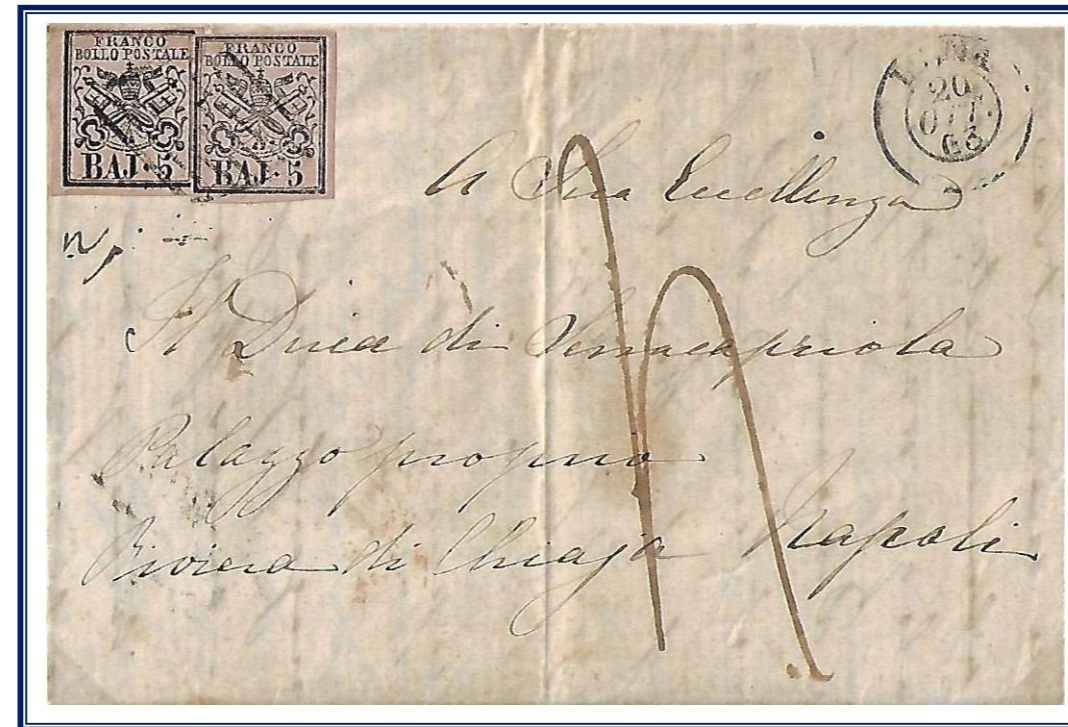 FRANCO
BOLLO POSTALE
BAJ·5
FRANCO
BOLLO POSTALE
BAJ·5
20
OTT.
66
A Sua Eccellenza
Il Duca di Serracapriola
Palazzo proprio
Riviera di Chiaja Napoli